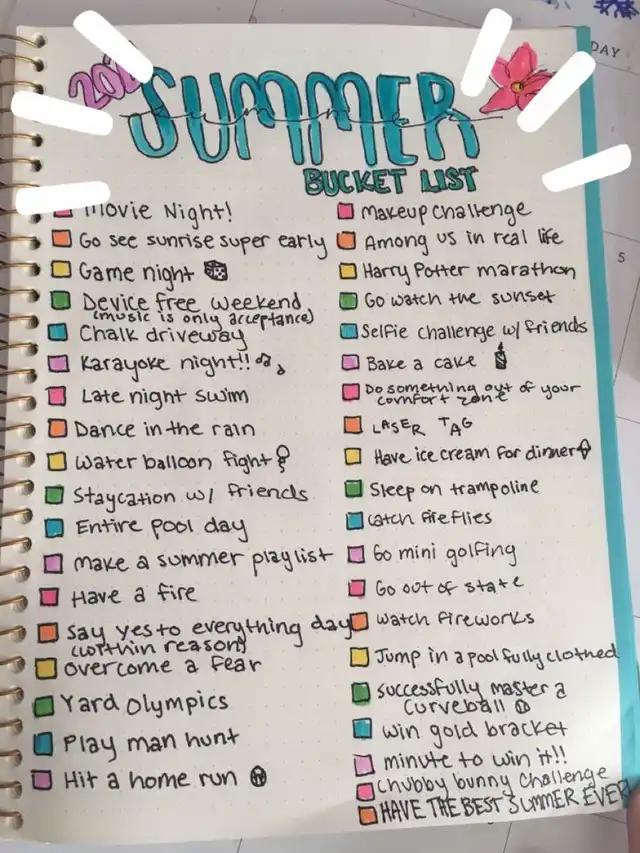 SUMMER
BUCKET LIST
Movie Night!
Go see sunrise super early
Game night
Device free weekend
(music is only acceptance)
Chalk driveway
Karayoke night!!
Late night swim
Dance in the rain
Water balloon fight
Staycation w/ friends
Entire pool day
make a summer playlist
Have a fire
Say yes to everything day
(worthin reason)
overcome a fear
Yard Olympics
Play man hunt
Hit a home run
Makeup challenge
Among us in real life
Harry Potter marathon
Go watch the sunset
Selfie challenge w/ friends
Bake a cake
Do something out of your
comfort zone
LASER TAG
Have ice cream for dinner
Sleep on trampoline
catch fireflies
Go mini golfing
Go out of state
watch fireworks
Jump in a pool fully clothed
successfully master a
curveball
win gold bracket
minute to win it!!
chubby bunny challenge
HAVE THE BEST SUMMER EVER
DAY
5